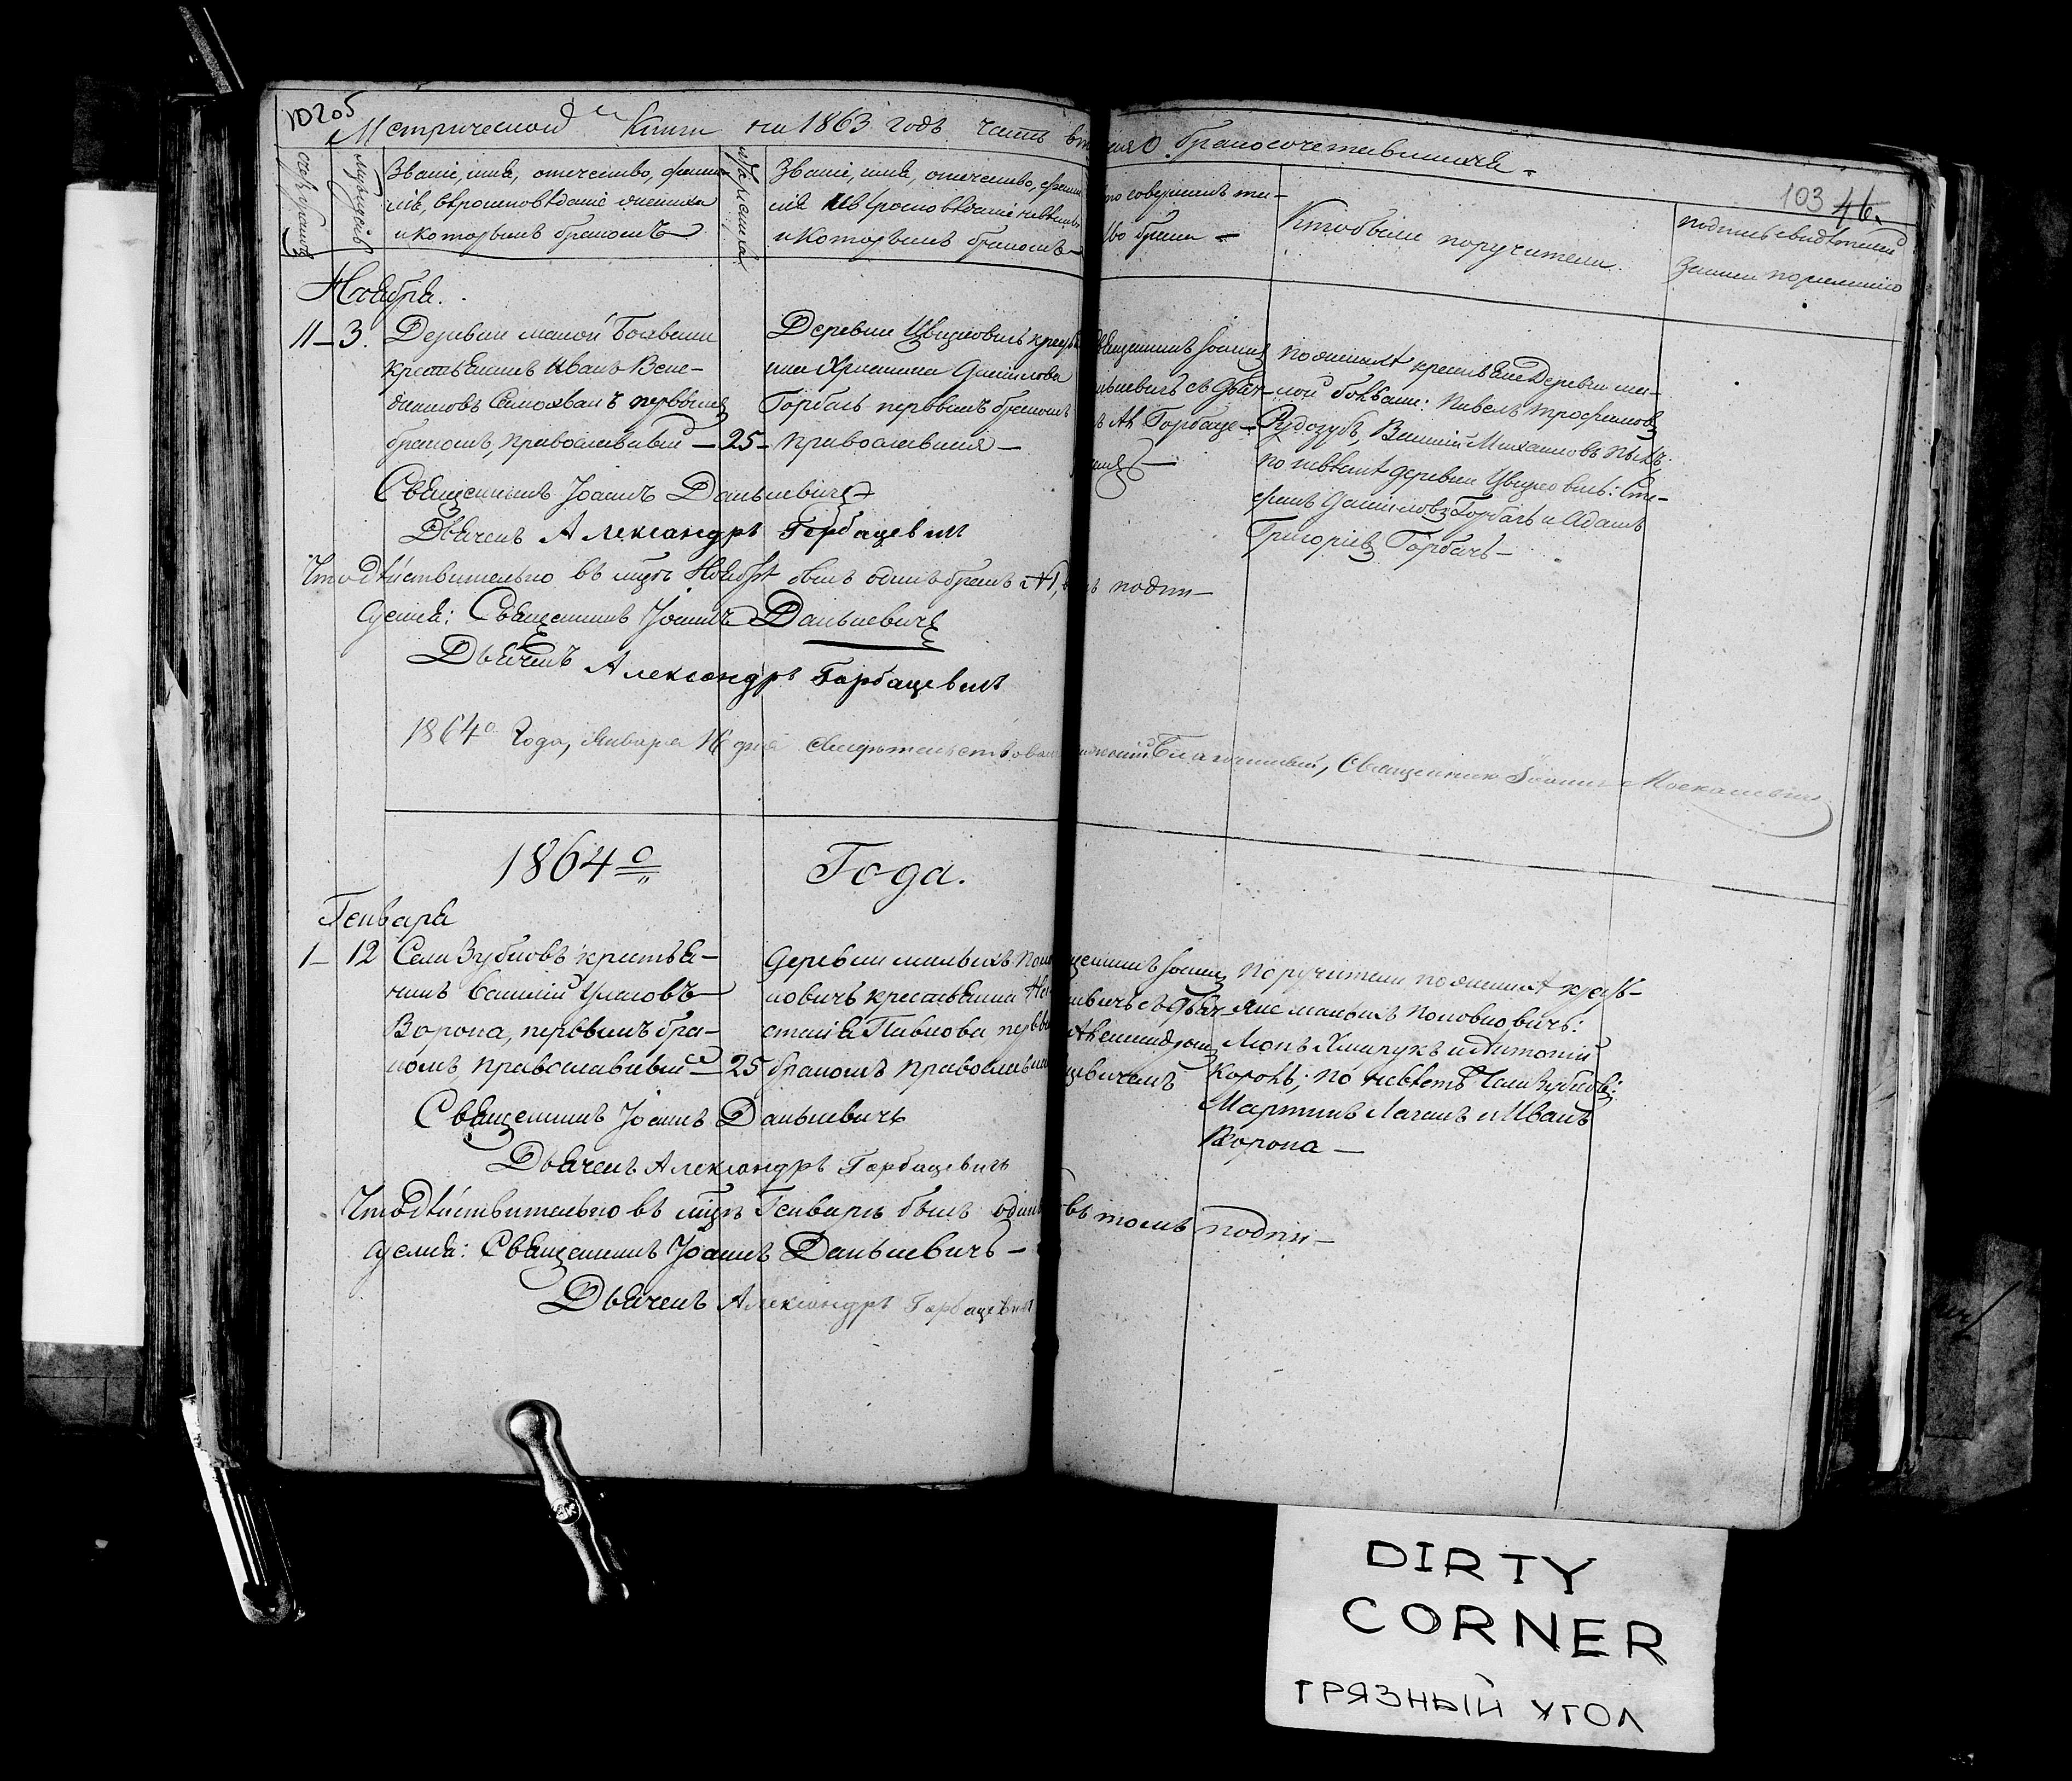 10205
Метрической Книги на 1863 годъ часть вт я О бракосочетавшихся.
103 46.
счетъ браковъ
Мѣсяцъ и день
Званіе, имя, отечество, фами-
лія, вѣроисповѣданіе жениха
и которымъ бракомъ
Лѣта жениха
Званіе, имя, отечество, фами
лія и вѣроисповѣданіе невѣсты
и которымъ бракомъ
то совершалъ та-
во брака —
Кто были поручители.
подпись свидѣтелей
записи по желанію
Ноября.
11 — 3.
Деревни малой Боквани
крестьянинъ Иванъ Вене-
диктовъ Самохвалъ первымъ
бракомъ, православный — 25 —
Деревни Цвирковичъ кресть
нка Христина Данилова
Горбачъ первымъ бракомъ
православная —
вященникъ Іоаннъ
ькевичъ съ дьяч-
Ал Горбаце-
По женихѣ крестьяне Деревни ма-
лой боквани: Павелъ Трофимовъ
Рудозубъ, Василій Михайловъ
по невѣстѣ деревни Цвирковичъ: Сте-
фанъ Даниловъ Горбачъ и Адамъ
Григорьевъ Горбачъ —
Священникъ Іоаннъ Данькевичъ
Дьячекъ Александръ Горбацевичъ
Что дѣйствительно въ мцѣ Ноябрѣ былъ одинъ бракъ №1, въ подпи —
суемся: Священникъ Іоаннъ Данькевичъ
Дьячекъ Александръ Горбацевичъ
1864о Года, Января 16 дня свидѣтельствовалъ Благочинный, Священникъ Іоаннъ Москалевичъ
1864о Года.
Генваря
1 — 12
Села Зубковъ крестья-
нинъ Василій Ворона, первымъ бра-
комъ, православный — 25
деревни малыхъ Поп
ковичъ крестьянка Нас
стасія Павлова первы
бракомъ православна
щенникъ Іоаннъ
кевичъ съ дьяч
Александромъ
цевичемъ
Поручители по женихѣ кресть-
яне малыхъ Поповковичъ:
и Антоній
Король; по невѣстѣ Села Зубковъ:
Мартинъ и Иванъ
Ворона —
Священникъ Іоаннъ Данькевичъ
Дьячекъ Александръ Горбацевичъ
Что дѣйствительно въ мцѣ Генварѣ былъ одинъ въ томъ подпи —
суемся: Священникъ Іоаннъ Данькевичъ —
Дьячекъ Александръ Горбацевичъ
DIRTY
CORNER
ГРЯЗНЫЙ УГОЛ